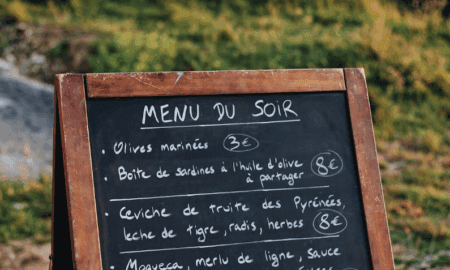 MENU DU SOIR
• Olives marinées 3€
• Boîte de sardines à l'huile d'olive
à partager 8€
• Ceviche de truite des Pyrénées,
leche de tigre, radis, herbes 8€
• Moqueca, merlu de ligne, sauce